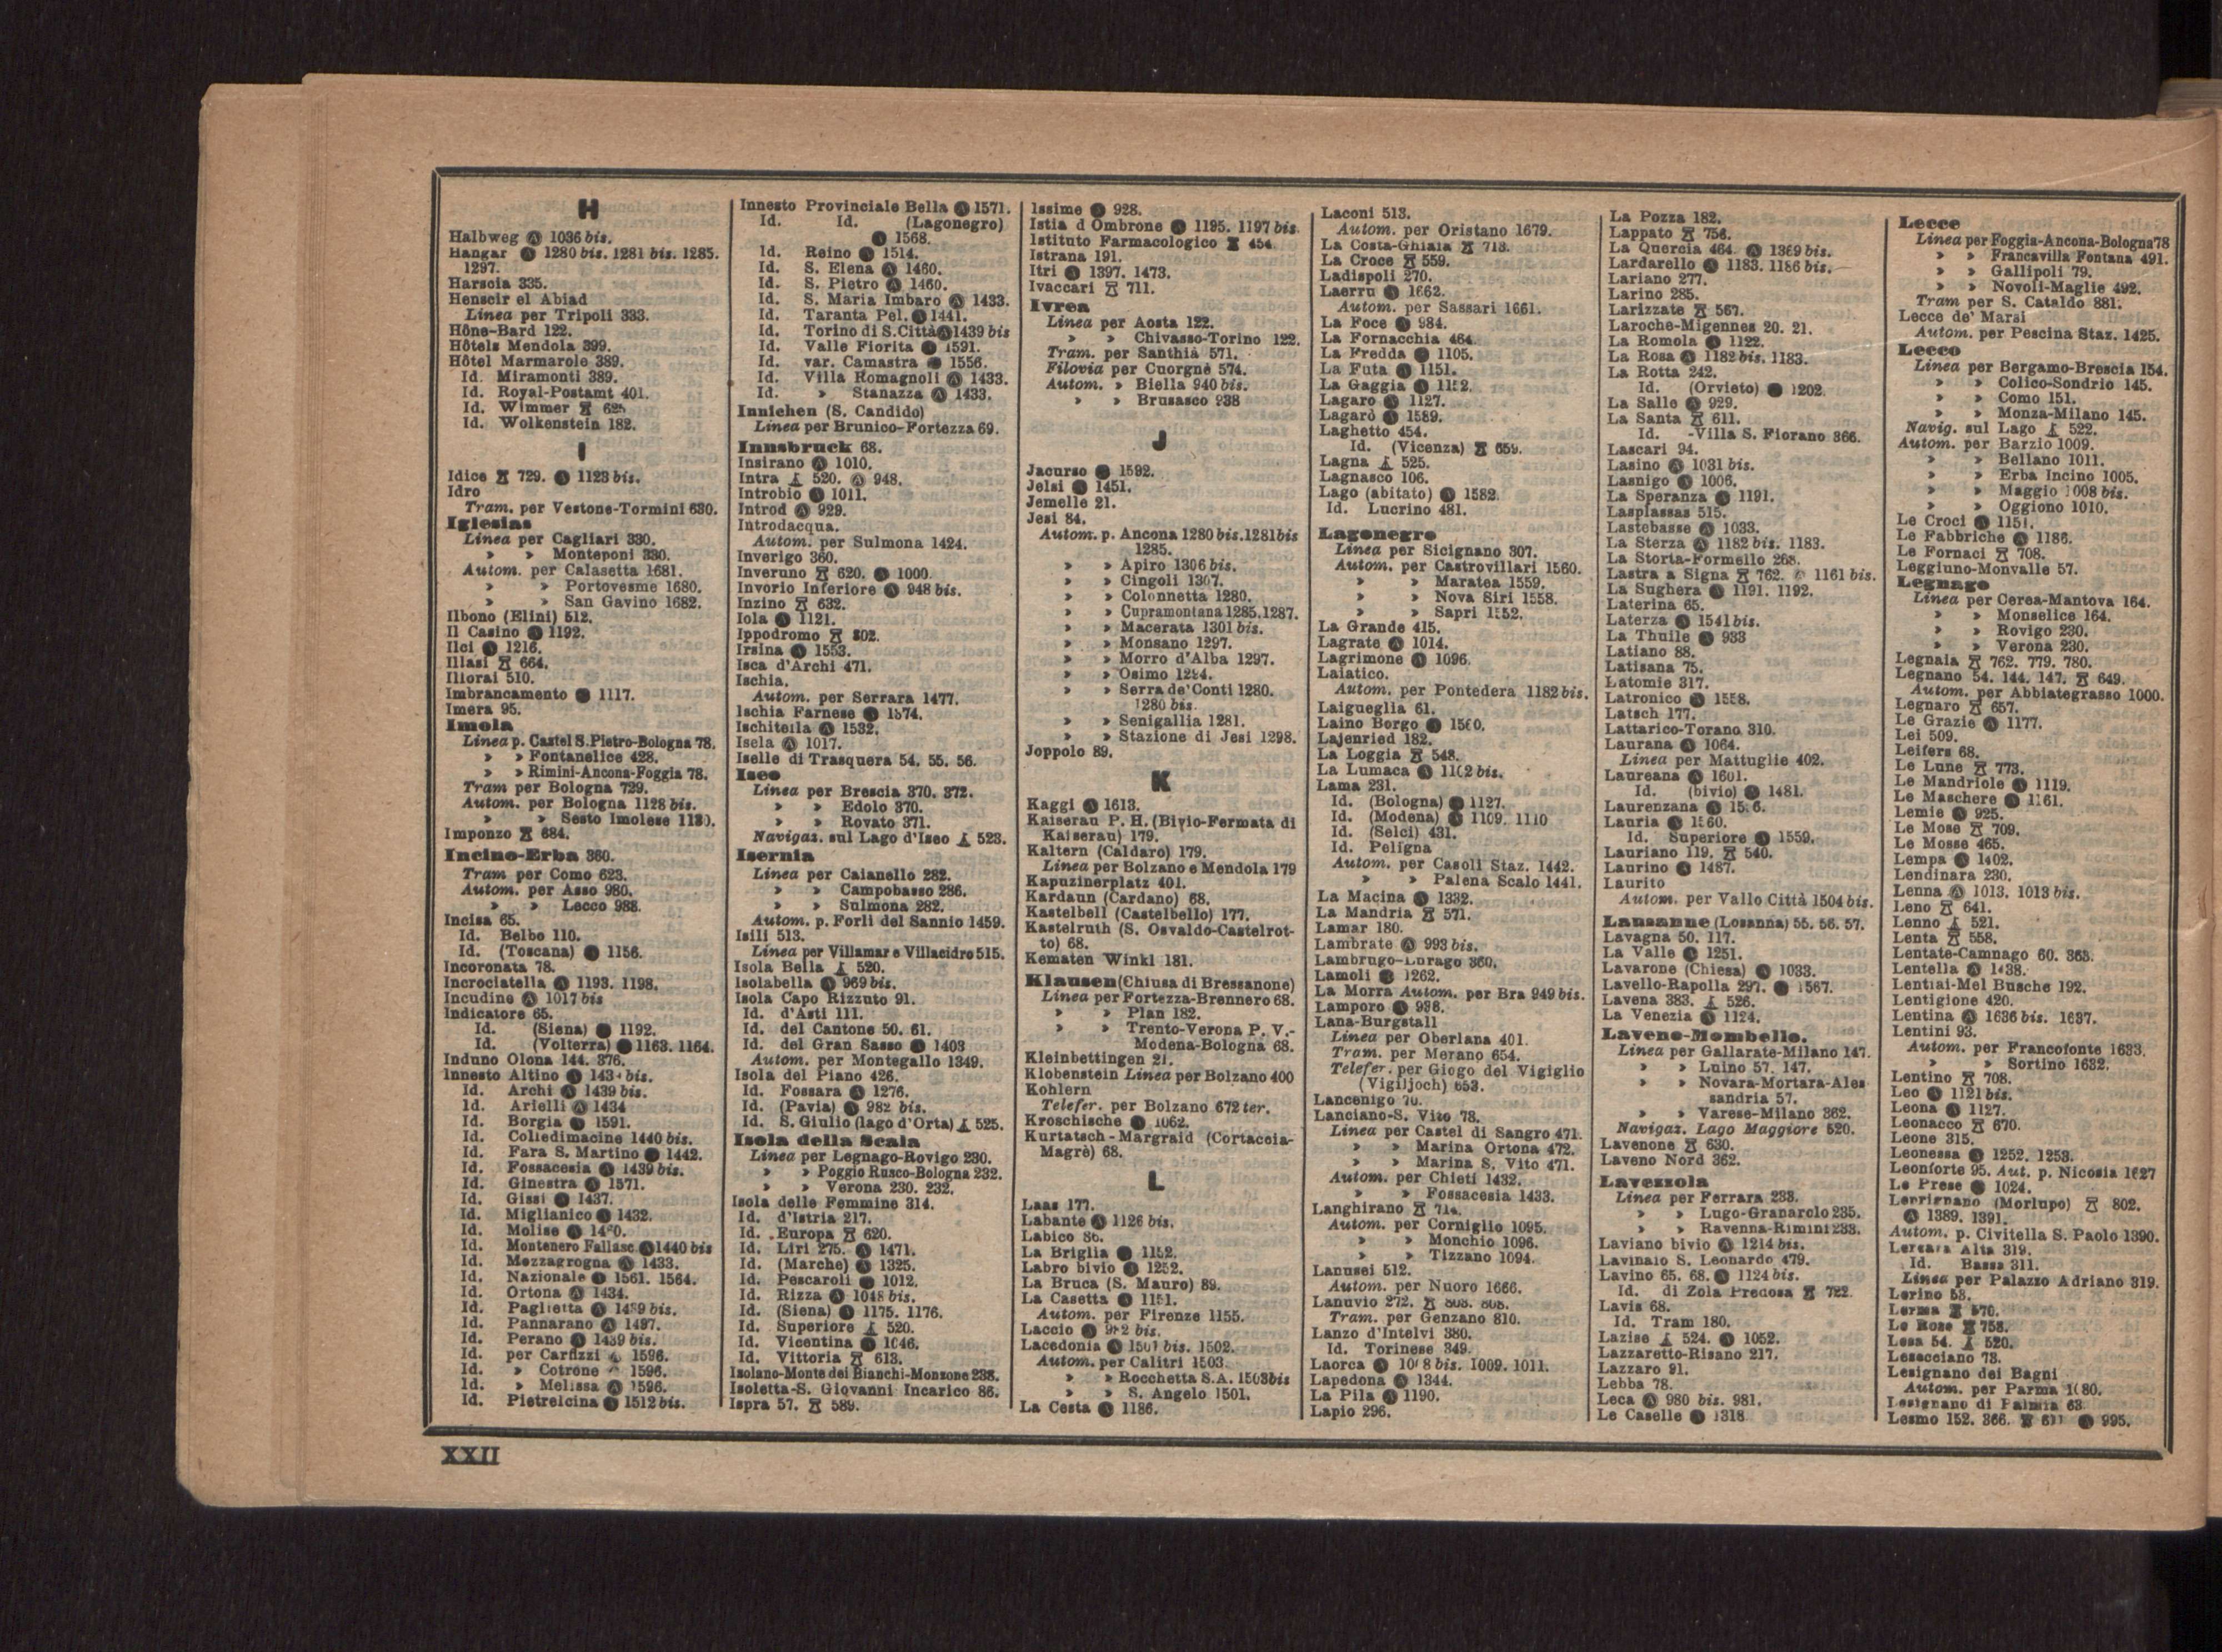 H
Halbweg Ⓐ 1036 bis.
Hangar Ⓐ 1280 bis. 1281 bis. 1285.
1297.
Harscia 335.
Henscir el Abiad
Linea per Tripoli 333.
Hône-Bard 122.
Hôtels Mendola 399.
Hôtel Marmarole 389.
Id. Miramonti 389.
Id. Royal-Postamt 401.
Id. Wimmer
Id. Wolkenstein 182.
I
Idice 729. Ⓐ 1123 bis.
Idro
Tram. per Vestone-Tormini 630.
Iglesias
Linea per Cagliari 330.
» » Monteponi 330.
Autom. per Calasetta 1681.
» » Portovesme 1680.
» » San Gavino 1682.
Ilbono (Elini) 512.
Il Casino Ⓐ 1192.
Ilci Ⓐ 1216.
Illasi 664.
Illorai 510.
Imbrancamento Ⓐ 1117.
Imera 95.
Imola
Linea p. Castel S. Pietro-Bologna 78.
» » Fontanelice 428.
» » Rimini-Ancona-Foggia 78.
Tram per Bologna 729.
Autom. per Bologna 1128 bis.
» » Sesto Imolese
Imponzo 684.
Incino-Erba 360.
Tram per Como 623.
Autom. per Asso 980.
» » Lecco 988.
Incisa 65.
Id. Belbo 110.
Id. (Toscana) Ⓐ 1156.
Incoronata 78.
Incrociatella Ⓐ 1193. 1198.
Incudine Ⓐ 1017 bis
Indicatore 65.
Id. (Siena) Ⓐ 1192.
Id. (Volterra) Ⓐ 1163. 1164.
Induno Olona 144. 376.
Innesto Altino Ⓐ bis.
Id. Archi Ⓐ 1439 bis.
Id. Arielli Ⓐ 1434
Id. Borgia Ⓐ 1591.
Id. Colledimacine 1440 bis.
Id. Fara S. Martino Ⓐ 1442.
Id. Fossacesia Ⓐ 1439 bis.
Id. Ginestra Ⓐ 1571.
Id. Gissi Ⓐ 1437.
Id. Miglianico Ⓐ 1432.
Id. Molise Ⓐ
Id. Montenero Fallasc. Ⓐ 1440 bis
Id. Mozzagrogna Ⓐ 1433.
Id. Nazionale Ⓐ 1561. 1564.
Id. Ortona Ⓐ 1434.
Id. Paglietta Ⓐ 1439 bis.
Id. Pannarano Ⓐ 1497.
Id. Perano Ⓐ 1439 bis.
Id. per Carfizzi Ⓐ 1596.
Id. » Cotrone Ⓐ 1596.
Id. » Melissa Ⓐ 1596.
Id. Pietrelcina Ⓐ 1512 bis.
Innesto Provinciale Bella Ⓐ 1571.
Id. Id. (Lagonegro)
Ⓐ 1568.
Id. Reino Ⓐ 1514.
Id. S. Elena Ⓐ 1460.
Id. S. Pietro Ⓐ 1460.
Id. S. Maria Imbaro Ⓐ 1433.
Id. Taranta Pel. Ⓐ 1441.
Id. Torino di S. Città Ⓐ 1439 bis
Id. Valle Fiorita Ⓐ 1591.
Id. var. Camastra Ⓐ 1556.
Id. Villa Romagnoli Ⓐ 1433.
Id. » Stanazza Ⓐ 1433.
Innichen (S. Candido)
Linea per Brunico-Fortezza 69.
Innsbruck 68.
Insirano Ⓐ 1010.
Intra 520. Ⓐ 948.
Introbio Ⓐ 1011.
Introd Ⓐ 929.
Introdacqua.
Autom. per Sulmona 1424.
Inverigo 360.
Inveruno 620. Ⓐ 1000.
Invorio Inferiore Ⓐ 948 bis.
Inzino 632.
Iola Ⓐ 1121.
Ippodromo 802.
Irsina Ⓐ 1553.
Isca d'Archi 471.
Ischia.
Autom. per Serrara 1477.
Ischia Farnese Ⓐ 1374.
Ischitella Ⓐ 1532.
Isela Ⓐ 1017.
Iselle di Trasquera 54. 55. 56.
Iseo
Linea per Brescia 370. 372.
» » Edolo 370.
» » Rovato 371.
Navigaz. sul Lago d'Iseo 523.
Isernia
Linea per Caianello 282.
» » Campobasso 286.
» » Sulmona 282.
Autom. p. Forli del Sannio 1459.
Isili 513.
Linea per Villamar e Villacidro 515.
Isola Bella 520.
Isolabella Ⓐ 969 bis.
Isola Capo Rizzuto 91.
Id. d'Asti 111.
Id. del Cantone 50. 61.
Id. del Gran Sasso Ⓐ 1403
Autom. per Montegallo 1349.
Isola del Piano 426.
Id. Fossara Ⓐ 1276.
Id. (Pavia) Ⓐ 982 bis.
Id. S. Giulio (lago d'Orta) 525.
Isola della Scala
Linea per Legnago-Rovigo 230.
» » Poggio Rusco-Bologna 232.
» » Verona 230. 232.
Isola delle Femmine 314.
Id. d'Istria 217.
Id. Europa 620.
Id. Liri 275. Ⓐ 1471.
Id. (Marche) Ⓐ 1325.
Id. Pescaroli Ⓐ 1012.
Id. Rizza Ⓐ 1048 bis.
Id. (Siena) Ⓐ 1175. 1176.
Id. Superiore 520.
Id. Vicentina Ⓐ 1046.
Id. Vittoria 613.
Isolano-Monte dei Bianchi-Monzone 238.
Isoletta-S. Giovanni Incarico 86.
Ispra 57. 589.
Issime Ⓐ 928.
Istia d Ombrone Ⓐ 1195. 1197 bis
Istituto Farmacologico 454
Istrana 191.
Itri Ⓐ 1397. 1473.
Ivaccari 711.
Ivrea
Linea per Aosta 122.
» » Chivasso-Torino 122.
Tram. per Santhià 571.
Filovia per Cuorgnè 574.
Autom. » Biella 940 bis.
» » Brusasco 938
J
Jacurso Ⓐ 1592.
Jelsi Ⓐ 1451.
Jemelle 21.
Jesi 84.
Autom. p. Ancona 1280 bis. 1281 bis
1285.
» » Apiro 1306 bis.
» » Cingoli 1307.
» » Colonnetta 1280.
» » Cupramontana 1285. 1287.
» » Macerata 1301 bis.
» » Monsano 1297.
» » Morro d'Alba 1297.
» » Osimo
» » Serra de' Conti 1280.
1280 bis
» » Senigallia 1281.
» » Stazione di Jesi 1298.
Joppolo 89.
K
Kaggi Ⓐ 1613.
Kaiserau P. H. (Bivio-Fermata di
Kaiserau) 179.
Kaltern (Caldaro) 179.
Linea per Bolzano e Mendola 179
Kapuzinerplatz 401.
Kardaun (Cardano) 68.
Kastelbell (Castelbello) 177.
Kastelruth (S. Osvaldo-Castelrot-
to) 68.
Kematen Winkl 181.
Klausen (Chiusa di Bressanone)
Linea per Fortezza-Brennero 68.
» » Plan 182.
» » Trento-Verona P. V.-
Modena-Bologna 68.
Kleinbettingen 21.
Klobenstein Linea per Bolzano 400
Kohlern
Telefer. per Bolzano 672 ter.
Kroschische Ⓐ 1062.
Kurtatsch-Margraid (Cortaccia-
Magrè) 68.
L
Laas 177.
Labante Ⓐ 1126 bis.
Labico 86.
La Briglia Ⓐ 1152.
Labro bivio Ⓐ 1252.
La Bruca (S. Mauro) 89.
La Casetta Ⓐ 1151.
Autom. per Firenze 1155.
Laccio Ⓐ bis.
Lacedonia Ⓐ 1501 bis. 1502.
Autom. per Calitri 1503.
» » Rocchetta S.A. 1503 bis
» » S. Angelo 1501.
La Cesta Ⓐ 1186.
Laconi 513.
Autom. per Oristano 1679.
La Costa-Ghiaia 713.
La Croce 559.
Ladispoli 270.
Laerru Ⓐ 1662.
Autom. per Sassari 1661.
La Foce Ⓐ 984.
La Fornacchia 464.
La Fredda Ⓐ 1105.
La Futa Ⓐ 1151.
La Gaggia Ⓐ 1152.
Lagaro Ⓐ 1127.
Lagarò Ⓐ 1589.
Laghetto 454.
Id. (Vicenza) 659.
Lagna 525.
Lagnasco 106.
Lago (abitato) Ⓐ 1582.
Id. Lucrino 481.
Lagonegro
Linea per Sicignano 307.
Autom. per Castrovillari 1560.
» » Maratea 1559.
» » Nova Siri 1558.
» » Sapri 1552.
La Grande 415.
Lagrate Ⓐ 1014.
Lagrimone Ⓐ 1096.
Laiatico.
Autom. per Pontedera 1182 bis.
Laigueglia 61.
Laino Borgo Ⓐ 1560.
Lajenried 182.
La Loggia 548.
La Lumaca Ⓐ 1102 bis.
Lama 231.
Id. (Bologna) Ⓐ 1127.
Id. (Modena) Ⓐ 1109. 1110
Id. (Selci) 431.
Id. Peligna
Autom. per Casoli Staz. 1442.
» » Palena Scalo 1441.
La Macina Ⓐ 1332.
La Mandria 571.
Lamar 180.
Lambrate Ⓐ 993 bis.
Lambrugo-Lurago 360.
Lamoli Ⓐ 1262.
La Morra Autom. per Bra 949 bis.
Lamporo Ⓐ 936.
Lana-Burgstall
Linea per Oberlana 401.
Tram. per Merano 654.
Telefer. per Giogo del Vigiglio
(Vigiljoch) 653.
Lancenigo 70.
Lanciano-S. Vito 78.
Linea per Castel di Sangro 471.
» » Marina Ortona 472.
» » Marina S. Vito 471.
Autom. per Chieti 1432.
» » Fossacesia 1433.
Langhirano
Autom. per Corniglio 1095.
» » Monchio 1096.
» » Tizzano 1094.
Lanusei 512.
Autom. per Nuoro 1666.
Lanuvio 272.
Tram. per Genzano 810.
Lanzo d'Intelvi 380.
Id. Torinese 349.
Laorca Ⓐ 1008 bis. 1009. 1011.
Lapedona Ⓐ 1344.
La Pila Ⓐ 1190.
Lapio 296.
La Pozza 182.
Lappato 756.
La Quercia 464. Ⓐ 1369 bis.
Lardarello Ⓐ 1183. 1186 bis.
Lariano 277.
Larino 285.
Larizzate 567.
Laroche-Migennes 20. 21.
La Romola Ⓐ 1122.
La Rosa Ⓐ 1182 bis. 1183.
La Rotta 242.
Id. (Orvieto) Ⓐ 1202
La Salle Ⓐ 929.
La Santa 611.
Id. -Villa S. Fiorano 366.
Lascari 94.
Lasino Ⓐ 1031 bis.
Lasnigo Ⓐ 1006.
La Speranza Ⓐ 1191.
Lasplassas 515.
Lastebasse Ⓐ 1033.
La Sterza Ⓐ 1182 bis. 1183.
La Storta-Formello 268.
Lastra a Signa 762. Ⓐ 1161 bis.
La Sughera Ⓐ 1191. 1192.
Laterina 65.
Laterza Ⓐ 1541 bis.
La Thuile Ⓐ 933
Latiano 88.
Latisana 75.
Latomie 317.
Latronico Ⓐ 1558.
Latsch 177.
Lattarico-Torano 310.
Laurana Ⓐ 1064.
Linea per Mattuglie 402.
Laureana Ⓐ 1601.
Id. (bivio) Ⓐ 1481.
Laurenzana Ⓐ
Lauria Ⓐ 1560.
Id. Superiore Ⓐ 1559.
Lauriano 119. 540.
Laurino Ⓐ 1487.
Laurito
Autom. per Vallo Città 1504 bis.
Lausanne (Losanna) 55. 56. 57.
Lavagna 50. 117.
La Valle Ⓐ 1251.
Lavarone (Chiesa) Ⓐ 1033.
Lavello-Rapolla 297. Ⓐ 1567.
Lavena 383. 526.
La Venezia Ⓐ 1124.
Laveno-Mombello.
Linea per Gallarate-Milano 147.
» » Luino 57. 147.
» » Novara-Mortara-Ales
sandria 57.
» » Varese-Milano 362.
Navigaz. Lago Maggiore 520.
Lavenone 630.
Laveno Nord 362.
Lavezzola
Linea per Ferrara 233.
» » Lugo-Granarolo 235.
» » Ravenna-Rimini 233.
Laviano bivio Ⓐ 1214 bis.
Lavinaio S. Leonardo 479.
Lavino 65. 68. Ⓐ 1124 bis.
Id. di Zola Predosa 722.
Lavis 68.
Id. Tram 180.
Lazise 524. Ⓐ 1052.
Lazzaretto-Risano 217.
Lazzaro 91.
Lebba 78.
Leca Ⓐ 980 bis. 981.
Le Caselle Ⓐ 1318
Lecce
Linea per Foggia-Ancona-Bologna 78
» » Francavilla Fontana 491.
» » Gallipoli 79.
» » Novoli-Maglie 492.
Tram per S. Cataldo 881.
Lecce de' Marsi
Autom. per Pescina Staz. 1425.
Lecco
Linea per Bergamo-Brescia 154.
» » Colico-Sondrio 145.
» » Como 151.
» » Monza-Milano 145.
Navig. sul Lago 522.
Autom. per Barzio 1009.
» » Bellano 1011.
» » Erba Incino 1005.
» » Maggio 1008 bis.
» » Oggiono 1010.
Le Croci Ⓐ 1151.
Le Fabbriche Ⓐ 1186.
Le Fornaci 708.
Leggiuno-Monvalle 57.
Legnago
Linea per Cerea-Mantova 164.
» » Monselice 164.
» » Rovigo 230.
» » Verona 230.
Legnaia 762. 779. 780.
Legnano 54. 144. 147. 649.
Autom. per Abbiategrasso 1000.
Legnaro 657.
Le Grazie Ⓐ 1177.
Lei 509.
Leifers 68.
Le Lune 773.
Le Mandriole Ⓐ 1119.
Le Maschere Ⓐ 1161.
Lemie Ⓐ 925.
Le Mose 709.
Le Mosse 465.
Lempa Ⓐ 1402.
Lendinara 230.
Lenna Ⓐ 1013. 1013 bis.
Leno 641.
Lenno 521.
Lenta 558.
Lentate-Camnago 60. 363.
Lentella Ⓐ 1438.
Lentiai-Mel Busche 192.
Lentigione 420.
Lentina Ⓐ 1636 bis. 1637.
Lentini 93.
Autom. per Francofonte 1633.
» » Sortino 1632.
Lentino 708.
Leo Ⓐ 1121 bis.
Leona Ⓐ 1127.
Leonacco 670.
Leone 315.
Leonessa Ⓐ 1252. 1253.
Leonforte 95. Aut. p. Nicosia 1627
Le Prese Ⓐ 1024.
Leprignano (Morlupo) 802.
Ⓐ 1389. 1391.
Autom. p. Civitella S. Paolo 1390.
Lercara Alta 319.
Id. Bassa 311.
Linea per Palazzo Adriano 319.
Lerino 53.
Lerma 570.
Le Rose 758.
Lesa 54. 520.
Lesacciano 73.
Lesignano dei Bagni
Autom. per Parma 1080.
Lesignano di Palmia 63
Lesmo 152. 366. 611 Ⓐ 995.
XXII